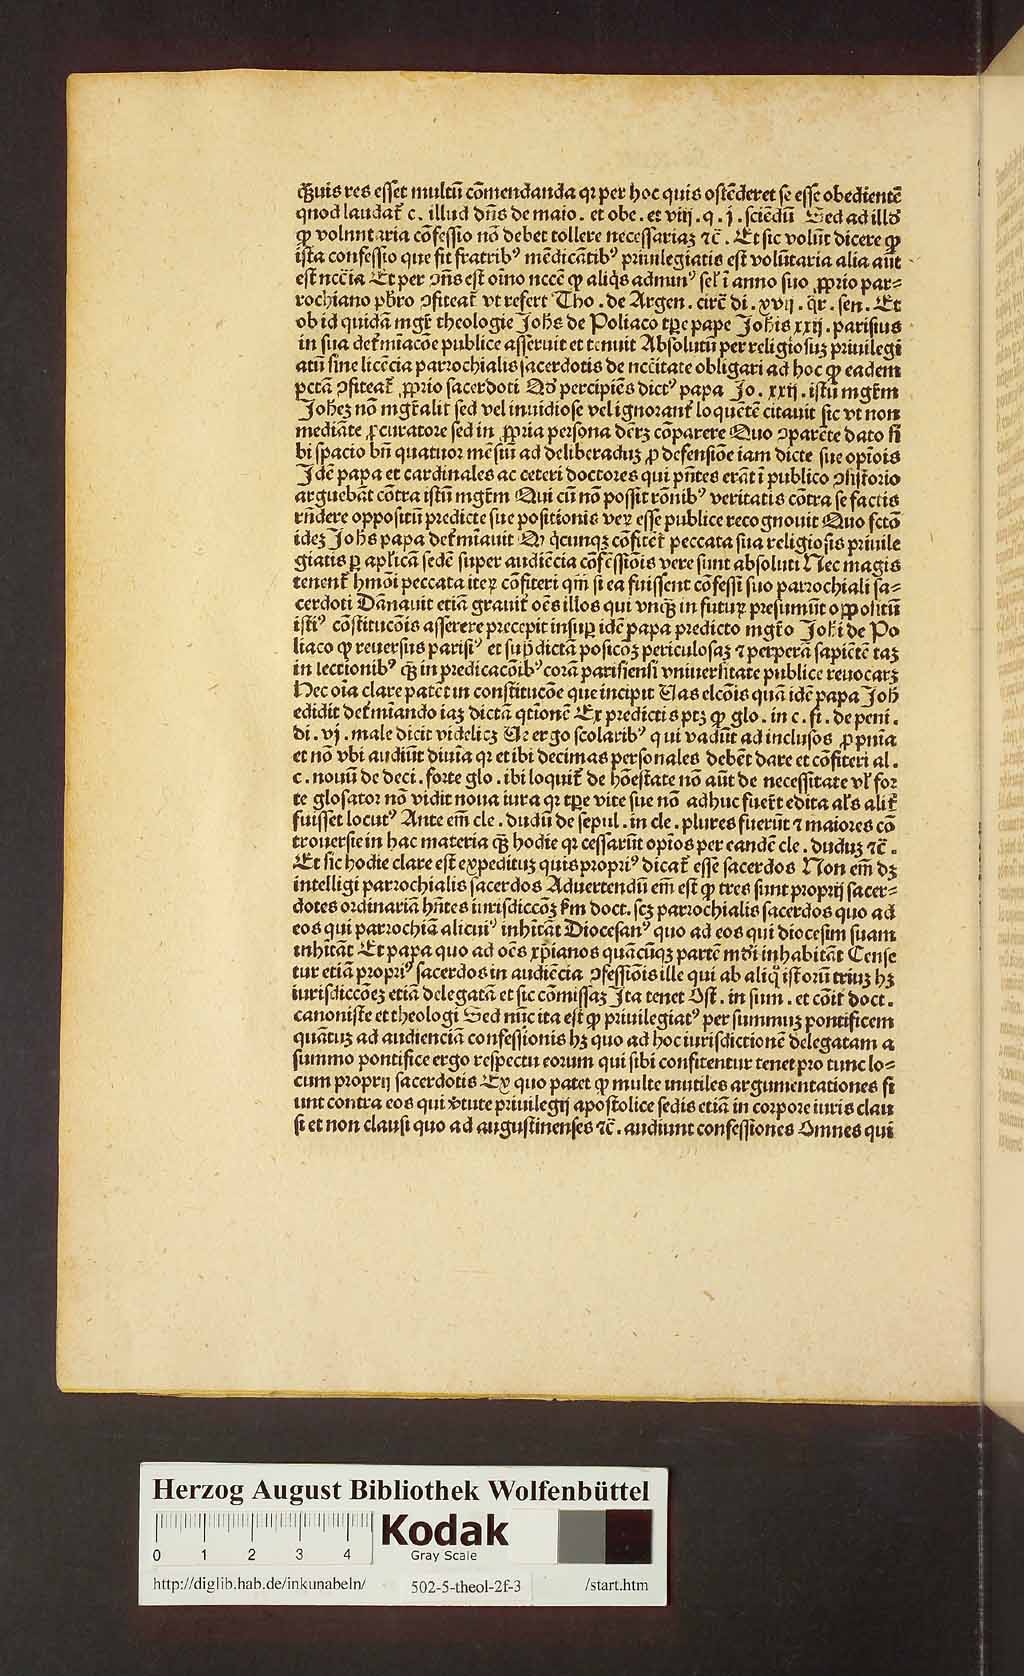 Q̄uis res esset multū cōmendanda qꝛ per hoc quis ostēderet se esse obedientē
quod laudat̄ c . illud dn̄s de maio . et obe . et viij . q . j . sciēdū Sed ad illd̓
ꝙ voluntaria cōfessio nō debet tollere necessariaꝫ ⁊c̄ . Et sic volūt dicere ꝙ
ista confessio que fit fratribꝰ mēdicātibꝰ priuilegiatis est volūtaria alia aūt
est nccīa Et per ꝯn̄s est oīno nccē ꝙ aliq̄s adminꝰ sel̓ ī anno suo ꝓprio par⸗
rochiano pb̄ro ꝯfiteat̄ vt refert Tho . de Argen . circ̄ di . xvij . q̄r . sen . Et
ob id quidā mgr̄ theologie Joh̄s de Poliaco tꝑe pape Joh̄is xxij . parisius
in sua det̄miacōe publice asseruit et tenuit Absolutū per religiosuꝫ priuilegi
atū sine licēcia parrochialis sacerdotis de ncc̄itate obligari ad hoc ꝙ eadem
pctā ꝯfiteat̄ ꝓprio sacerdoti Qd̓ percipiēs dictꝰ papa Jo . xxij . istū mgr̄m
Joheꝫ nō mgr̄alit̄ sed vel inuidiose vel ignorant̄ loquētē citauit sic vt non
mediāte ꝓcuratore sed in ꝓpria persona debꝫ cōparere Quo ꝯparēte dato si
bi spacio bn̄ quatuor mēsiū ad deliberāduꝫ ꝓ defensiōe iam dicte sue opīois
Jdē papa et cardinales ac ceteri doctores qui pn̄tes erāt ī publico ꝯsistorio
arguebāt cōtra istū mgr̄m Qui cū nō possit rōnibꝰ veritatis cōtra se factis
rn̄dere oppositū predicte sue positionis veꝝ esse publice recognouit Quo fctō
ideꝫ Joh̄s papa det̄miauit Q q̄cunqꝫ cōfitet̄ peccata sua religiosis priuile
giatis ꝑ apl̓icā sedē super audiēcia cōfessiōis vere sunt absoluti Nec magis
tenent̄ hmōi peccata iteꝝ cōfiteri qm̄ si ea fuissent cōfessi suo parrochiali sa⸗
cerdoti Dānauit etiā grauit̄ oēs illos qui vnq̄ꝫ in futuꝝ presumūt oppositū
istiꝰ cōstitucōis asserere precepit insuꝑ idē papa predicto mgr̄o Joh̄i de Po
liaco ꝙ reuersus parisiꝰ et sup̄dictā posicōꝫ periculosaꝫ ⁊ perperā sapiētē taꝫ
in lectionibꝰ q̄ꝫ in predicacōibꝰ corā parisiensi vniuersitate publice reuocarꝫ
Nec oīa clare patēt in constitucōe que incipit Vas elcōis quā idē papa Joh̄
edidit det̄miando iaꝫ dictā qtionē Ex predictis ptꝫ ꝙ glo . in c . fi . de peni .
di . vj . male dicit videlicꝫ Ve ergo scolaribꝰ qui vadūt ad inclusos ꝓ pn̄ia
et nō vbi audiūt diuīa qꝛ et ibi decimas personales debēt dare et cōfiteri al .
c . nouū de deci . forte glo . ibi loquit̄ de hōestate nō aūt de necessitate vl̓ for
te glosator nō vidit noua iura qꝛ tꝑe vite sue nō adhuc fuerūt edita al̓s alit̄
fuisset locutꝰ Ante em̄ cle . dudū de sepul . in cle . plures fuerūt ⁊ maiores cō
trouersie in hac materia q̄ꝫ hodie qꝛ cessarūt opīos per eandē cle . duduꝫ ⁊c̄ .
Et sic hodie clare est expedituꝫ quis propriꝰ dicat̄ esse sacerdos Non em̄ dꝫ
intelligi parrochialis sacerdos Aduertendū em̄ est ꝙ tres sunt proprij sacer⸗
dotes ordinariā hn̄tes iurisdiccōꝫ scd̓m doct. scꝫ parrochialis sacerdos quo ad
eos qui parrochiā alicuiꝰ inhītāt Diocesanꝰ quo ad eos qui diocesim suam
inhītāt Et papa quo ad oēs xp̄ianos quācūqꝫ partē mdī inhabitāt Cense
tur etiā propriꝰ sacerdos in audiēcia ꝯfessiōis ille qui ab aliq̊ istorū triuꝫ hꝫ
iurisdiccōeꝫ etiā delegatā et sic cōmissaꝫ Jta tenet Ost . in sum . et cōit̄ doct .
canoniste et theologi Sed nūc ita est ꝙ priuilegiatꝰ per summuꝫ pontificem
quātuꝫ ad audienciā confessionis hꝫ quo ad hoc iurisdictionē delegatam a
summo pontifice ergo respectu eorum qui sibi confitentur tenet pro tunc lo⸗
cum proprij sacerdotis Ex quo patet ꝙ multe inutiles argumentationes fi
unt contra eos qui v̓tute priuilegij apostolice sedis etiā in corpore iuris clau
si et non clausi quo ad augustinenses ⁊c̄ . audiunt confessiones Omnes qui
Herzog August Bibliothek Wolfenbüttel
0 1 2 3 4
Kodak
Gray Scale
http://diglib.hab.de/inkunabeln/ 502-5-theol-2f-3 /start.htm